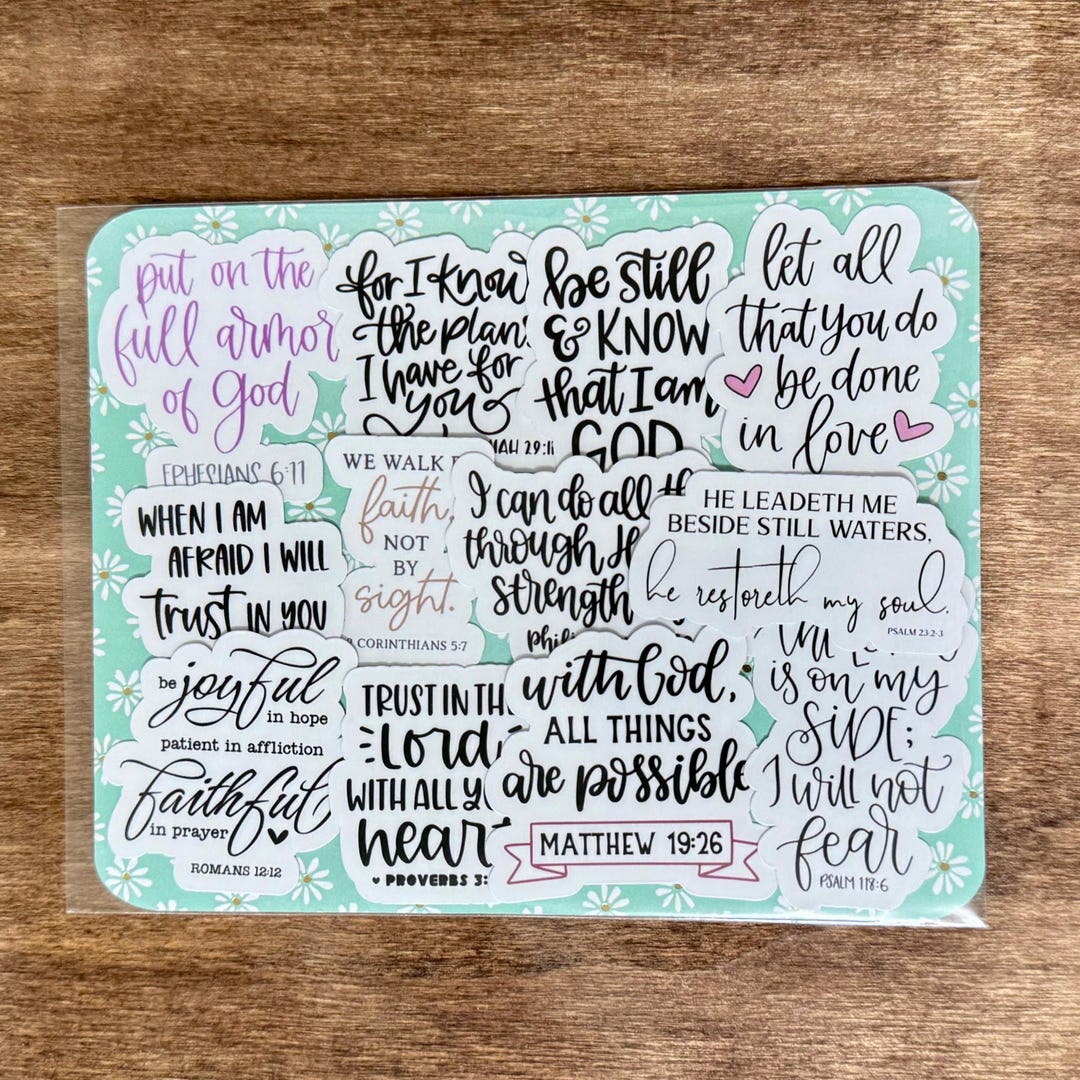 put on the
full armor
of God
EPHESIANS 6:11
for I know
the plan
I have for
you
29:11
be still
& KNOW
that I am
GOD
let all
that you do
be done
in love
WHEN I AM
AFRAID I WILL
trust IN YOU
WE WALK
faith,
NOT
BY
sight.
CORINTHIANS 5:7
I can do all
through
strength
HE LEADETH ME
BESIDE STILL WATERS,
he restoreth my soul.
PSALM 23:2-3
be joyful
in hope
patient in affliction
faithful
in prayer
ROMANS 12:12
TRUST IN TH
Lord
WITH ALL
heart
PROVERBS 3:
with God,
ALL THINGS
are possible
MATTHEW 19:26
is on my
SIDE;
I will not
fear
PSALM 118:6